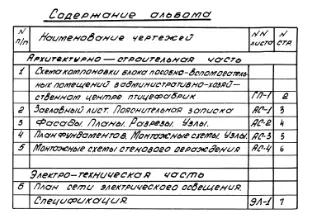 Содержание альбома
N п/п Наименование чертежей NN листа N стр
Архитектурно-строительная часть
1 Схема компоновки блока подсобно-вспомогатель-
ных помещений в административно-хозяй-
ственном центре птицефабрик ГП-1 2
2 Заглавный лист. Пояснительная записка АС-1 3
3 Фасады. Планы. Разрезы. Узлы. АС-2 4
4 План фундаментов. Монтажные схемы. Узлы. АС-3 5
5 Монтажные схемы стенового ограждения АС-4 6
Электро-техническая часть
6 План сети электрического освещения.
Спецификация ЭЛ-1 7